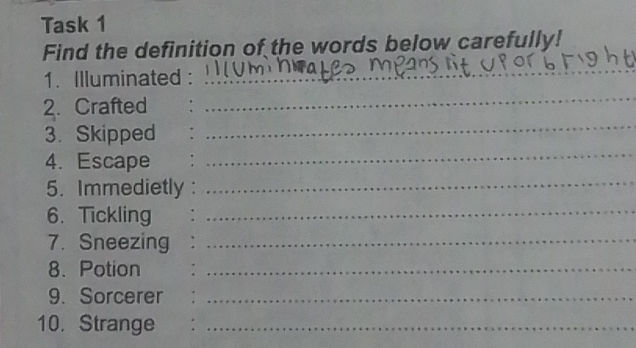 Task 1
Find the definition of the words below carefully!
1. Illuminated : illuminates means lit up or bright
2. Crafted :
3. Skipped :
4. Escape :
5. Immedietly :
6. Tickling :
7. Sneezing :
8. Potion :
9. Sorcerer :
10. Strange :